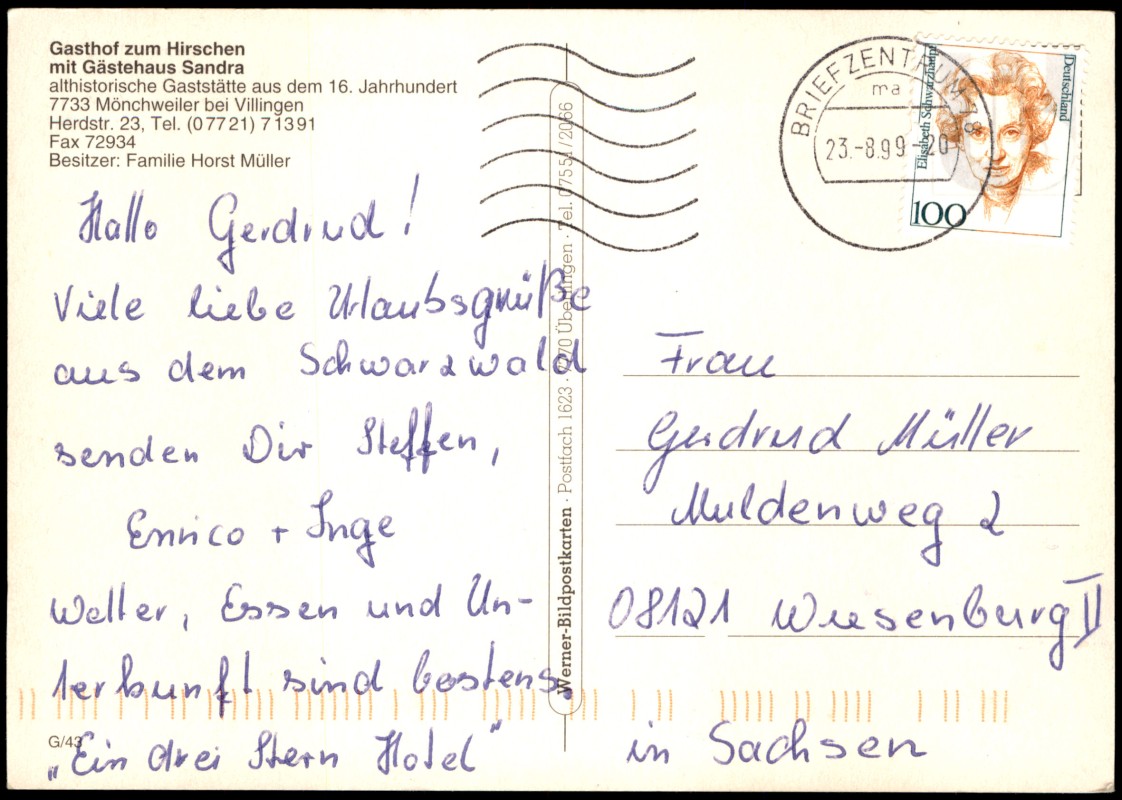 Gasthof zum Hirschen
mit Gästehaus Sandra
althistorische Gaststätte aus dem 16. Jahrhundert
7733 Mönchweiler bei Villingen
Herdstr. 23, Tel. (0 77 21) 7 13 91
Fax 72934
Besitzer: Familie Horst Müller
Hallo Gerdrud!
Viele liebe Urlaubsgrüße
aus dem Schwarzwald
senden Dir Steffen,
Enrico + Inge
Wetter, Essen und Un-
terkunft sind bestens
„Ein drei Stern Hotel"
G/43
Werner-Bildpostkarten · Postfach 1623 · 7770 Überlingen · Tel. 07551/2066
BRIEFZENTRUM 78
ma
23.-8.99-20
Elisabeth Schwarzhaupt
Deutschland
100
Frau
Gerdrud Müller
Muldenweg 2
08121 Wiesenburg II
in Sachsen